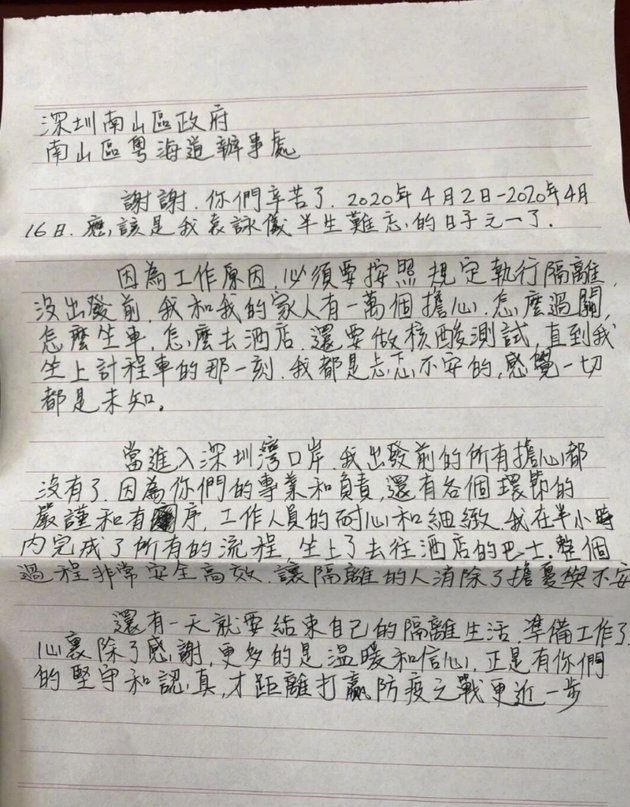 深圳南山區政府
南山區粵海道辦事處
謝謝.你們辛苦了.2020年4月2日-2020年4月
16日.應該是我袁詠儀半生難忘的日子元一了.
因為工作原因,必須要按照規定執行隔離,
沒出發前,我和我的家人有一萬個擔心,怎麼過關,
怎麼生車,怎麼去酒店.還要做核酸測試,直到我
生上計程車的那一刻.我都是忐忑不安的,感覺一切
都是未知。
當進入深圳灣口岸.我出發前的所有擔心都
沒有了.因為你們的專業和負責,還有各個環節的
嚴謹和有序,工作人員的耐心和細緻.我在半小時
內完成了所有的流程,生上了去往酒店的巴士.整個
過程非常安全高效.讓隔離的人消除了擔憂與不安
還有一天就要結束自己的隔離生活.準備工作了.
心裏除了感謝,更多的是溫暖和信心,正是有你們
的堅守和認真,才距離打贏防疫之戰更近一步